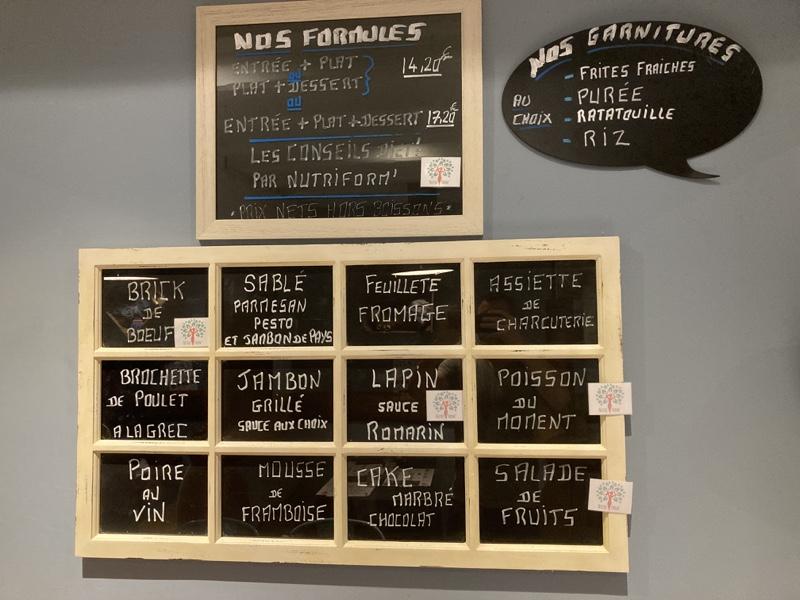 NOS FORMULES
ENTRÉE + PLAT
ou
PLAT + DESSERT
14,20€
ou
ENTRÉE + PLAT + DESSERT 17,20€
LES CONSEILS DIET'
PAR NUTRIFORM'
• PRIX NETS HORS BOISSONS •
NOS GARNITURES
AU CHOIX
- FRITES FRAICHES
- PURÉE
- RATATOUILLE
- RIZ
BRICK
DE
BOEUF
SABLÉ
PARMESAN
PESTO
ET JAMBON DE PAYS
FEUILLETE
FROMAGE
ASSIETTE
DE
CHARCUTERIE
BROCHETTE
DE POULET
A LA GREC
JAMBON
GRILLÉ
SAUCE AUX CHOIX
LAPIN
SAUCE
ROMARIN
POISSON
DU
MOMENT
POIRE
AU
VIN
MOUSSE
DE
FRAMBOISE
CAKE
MARBRÉ
CHOCOLAT
SALADE
DE
FRUITS